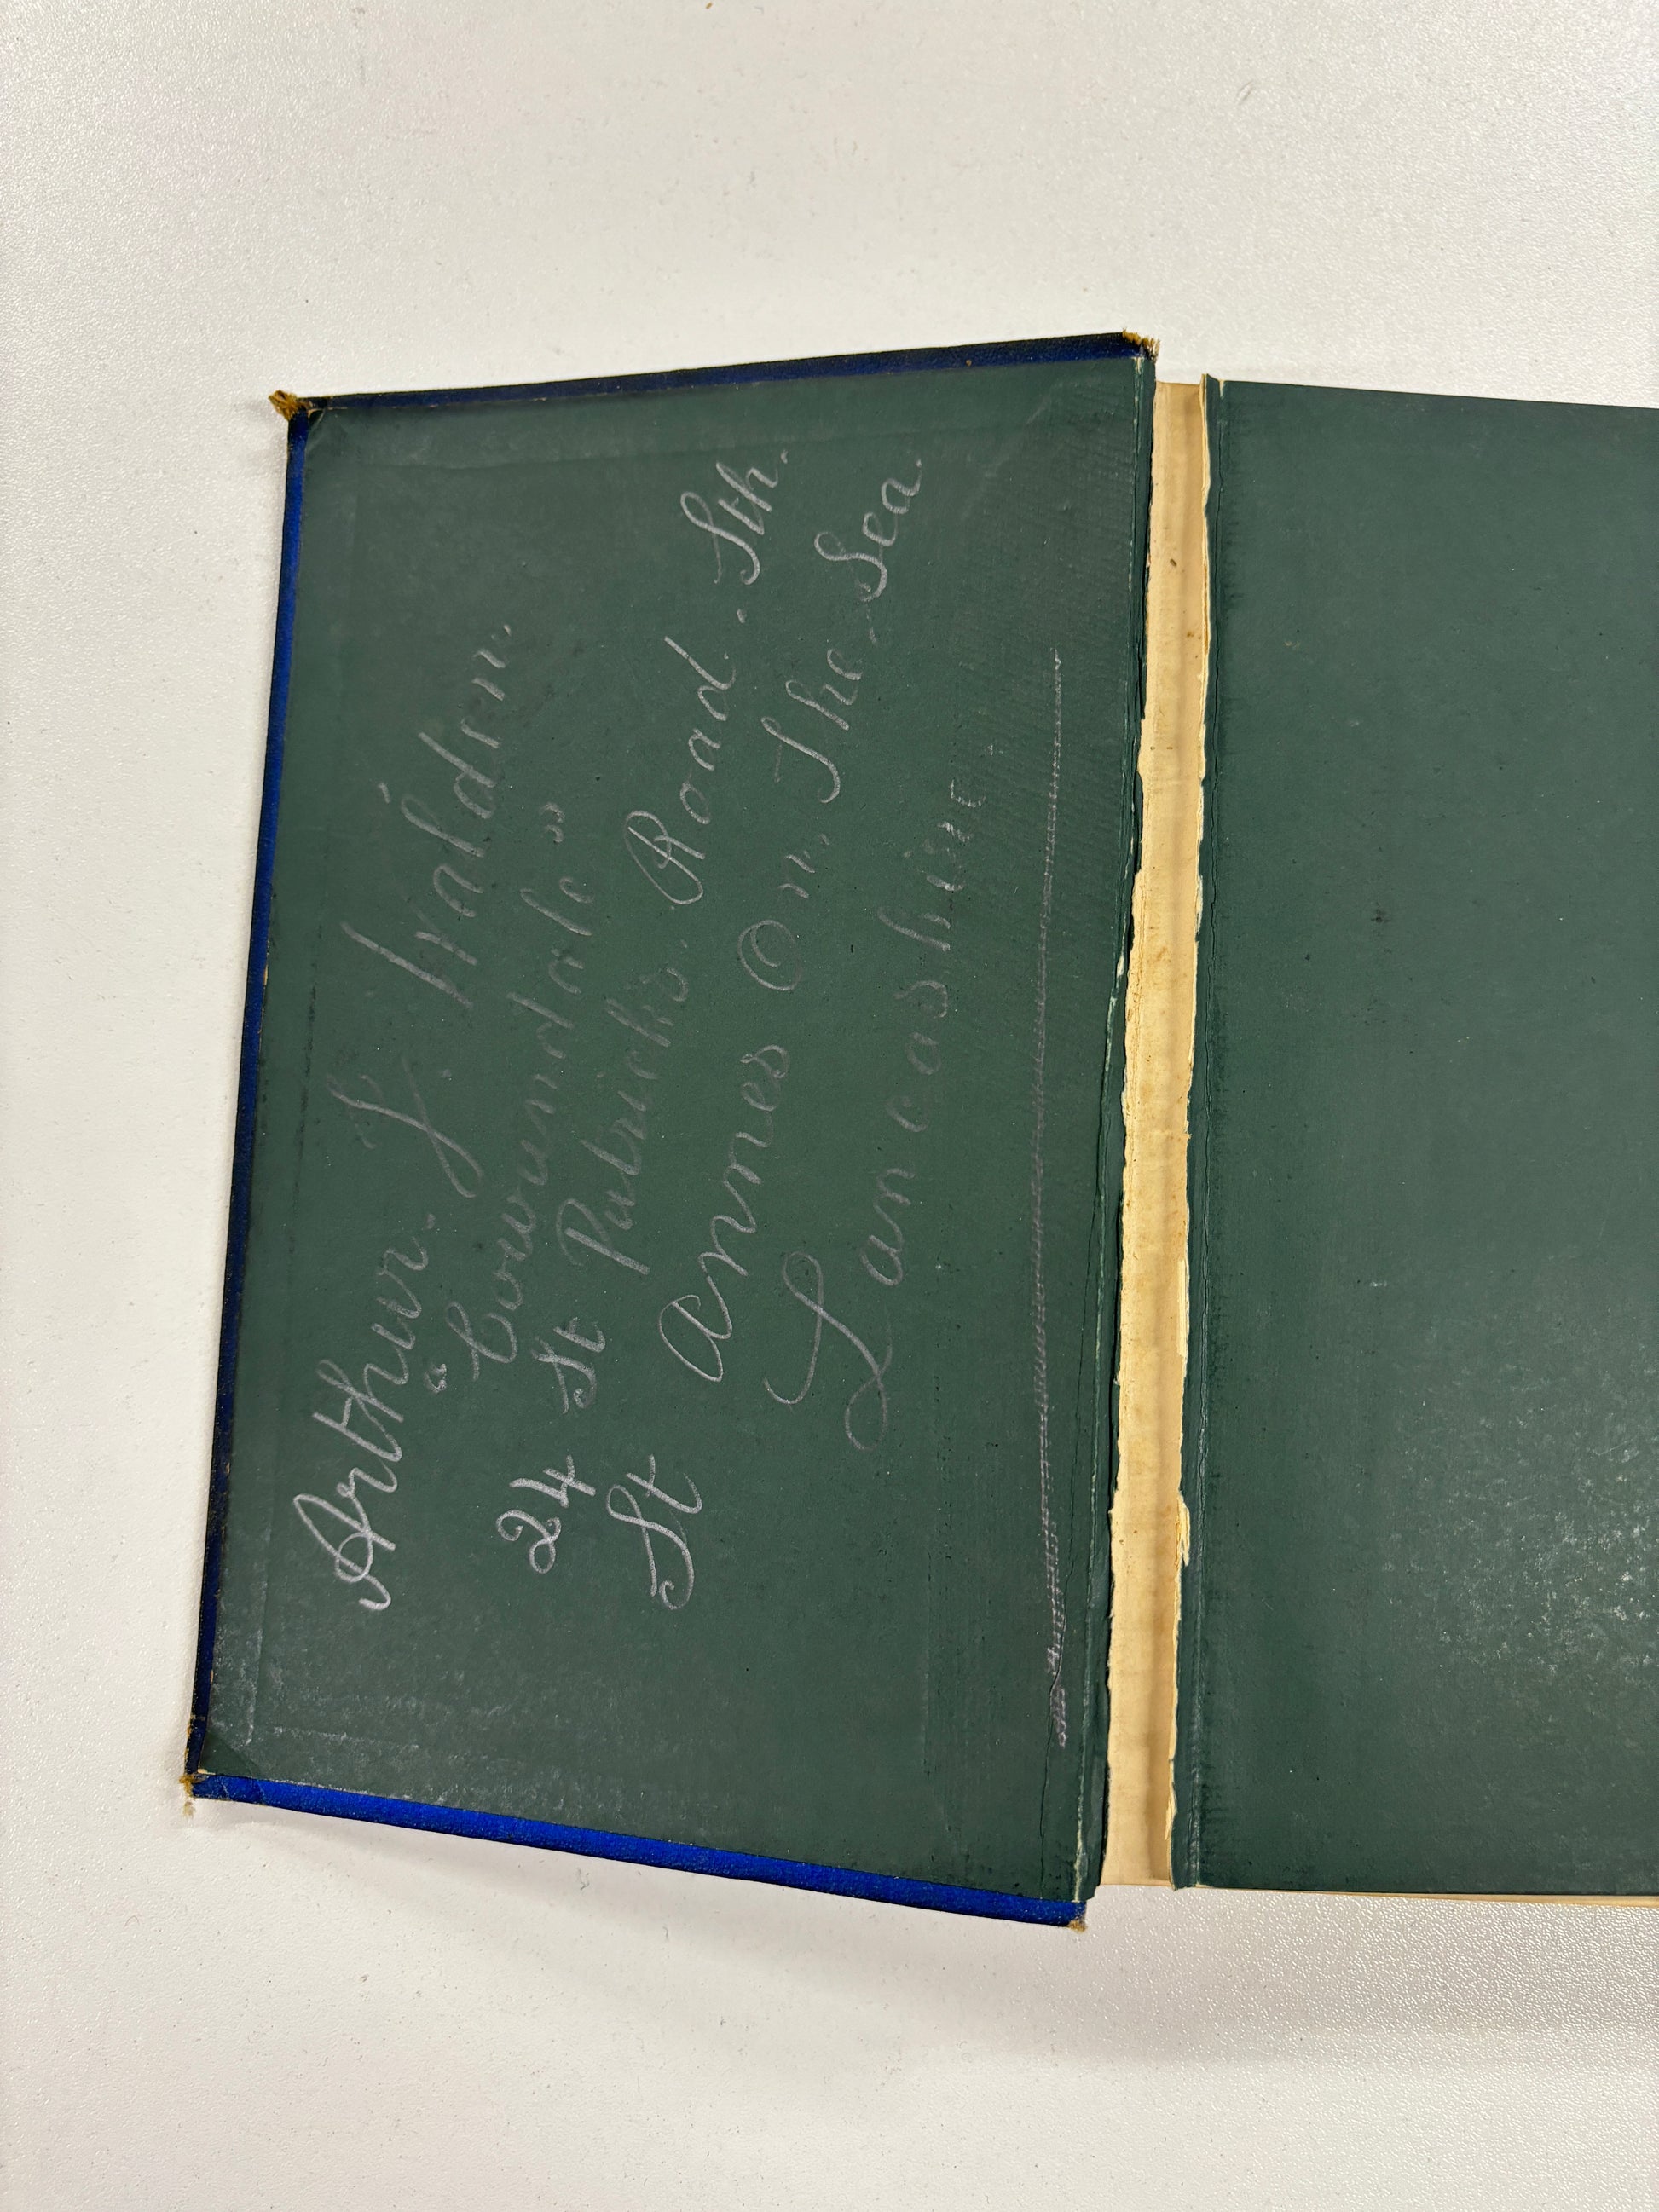 Arthur. J. Waldron.
"Cowendale"
24 St Patrick's. Road. Sth.
St Annes On. The. Sea.
Lancashire